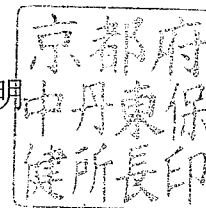 明
京都府
中丹東保
健所長印